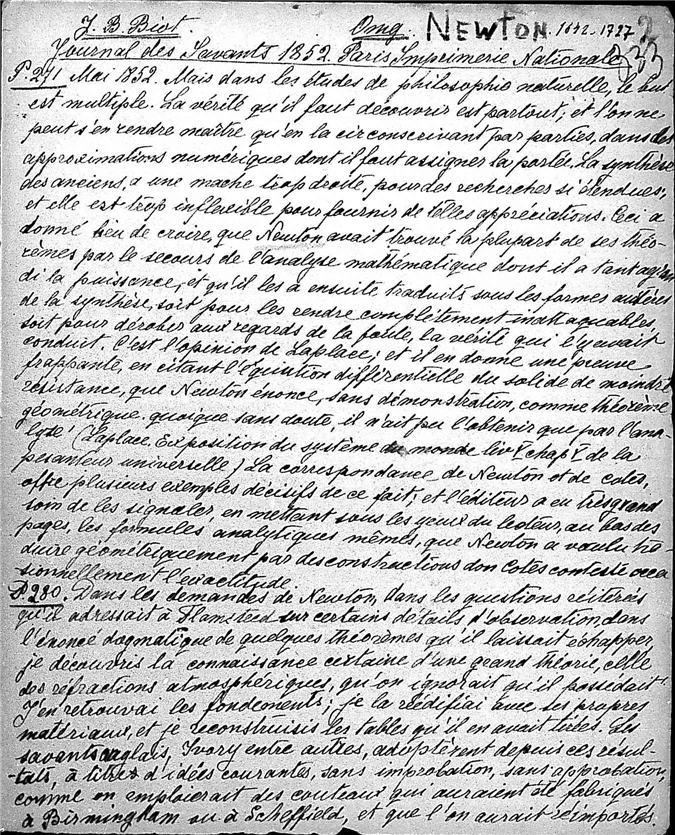 J. B. Biot. Omg. NEWTON. 1642-1727 2
333
Journal des Savants 1852. Paris Imprimerie Nationale
P 271 Mai 1852. Mais dans les études de philosophie naturelle, le but
est multiple. La vérité qu'il faut découvrir est partout; et l'on ne
peut s'en rendre maître qu'en la circonscrivant par parties, dans des
approximations numériques dont il faut assigner la portée. La synthèse
des anciens, a une mache trop droite, pour des recherches si étendues,
et elle est trop inflexible pour fournir de telles appréciations. Ceci a
donné lieu de croire, que Newton avait trouvé la plupart de ses théo-
rèmes par le secours de l'analyse mathématique dont il a tant agran
di la puissance, et qu'il les a ensuite traduits sous les formes austères
de la synthèse, soit pour les rendre complètement inattaquables,
soit pour dérober aux regards de la foule, la vérité qui l'y avait
conduit. C'est l'opinion de Laplace; et il en donne une preuve
frappante, en citant l'équation différentielle du solide de moindre
résistance, que Newton énonce, sans démonstration, comme théorème
géométrique. quoique sans doute, il n'ait pu l'obtenir que par l'ana-
lyse' (Laplace. Exposition du système du monde liv V chap V de la
pesanteur universelle) La correspondance de Newton et de Cotes,
offre plusieurs exemples décisifs de ce fait; et l'éditeur a eu très grand
soin de les signaler, en mettant sous les yeux du lecteur, au bas des
pages, les formules analytiques mêmes, que Newton a voulu tra
duire géométriquement par des constructions don Cotes conteste occa
sionnellement l'exactitude.
P 280. Dans les demandes de Newton, dans les questions réitérés
qu'il adressait à Flamsteed sur certains détails d'observation, dans
l'énoncé dogmatique de quelques théorèmes qu'il laissait échapper,
je découvris la connaissance certaine d'une grand théorie, celle
des réfractions atmosphériques, qu'on ignorait qu'il possédait
J'en retrouvai les fondements; je la réédifiai avec ses propres
matériaux, et je reconstruisis les tables qu'il en avait tirées. Les
savants anglais, Ivory entre autres, adoptèrent depuis ces résul-
tats, à titres d'idées courantes, sans improbation, sans approbation,
comme on emploierait des couteaux qui auraient été fabriqués
à Birmingham ou à Scheffield, et que l'on aurait réimportés.